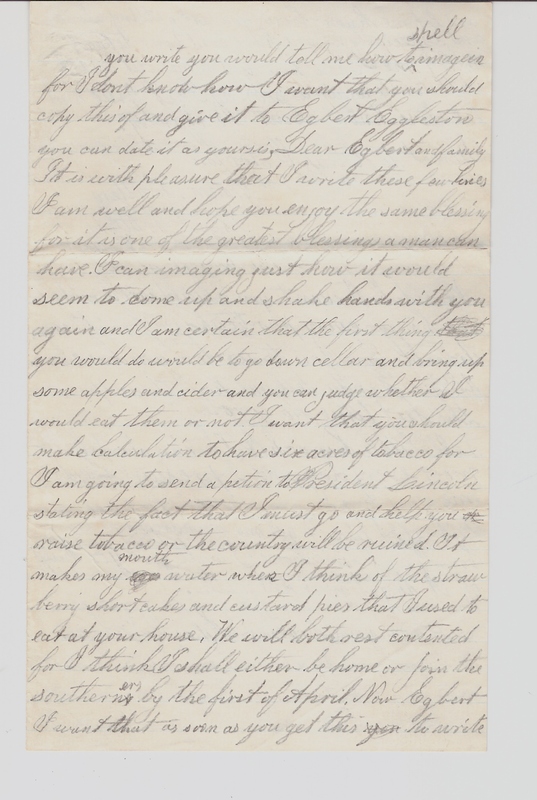 spell
you write you would tell me how to imagein
for I dont know how I want that you should
copy this of and give it to Egbert Eggleston
you can date it as yours is, Dear Egbert and family
It is with pleasure that I write these few lines
I am well and hope you enjoy the same blessing
for it is one of the greatest blessings a man can
have. I can imaging just how it would
seem to come up and shake hands with you
again and I am certain that the first thing
you would do would be to go down cellar and bring up
some apples and cider and you can judge whether I
would eat them or not I want that you should
make calculation to have six acres of tobacco for
I am going to send a petion to President Lincoln
stating the fact that I must go and help you
raise tobacco or the country will be ruined. It
makes my mouth water when I think of the straw
berry shortcakes and custard pies that I used to
eat at your house, We will both rest contented
for I think I shall either be home or join the
southerners by the first of April. Now Egbert
I want that as soon as you get this you to write